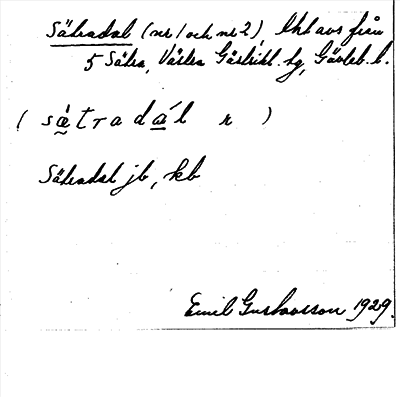 Sätradal (nr 1 och nr 2), lht avs från
5 Sätra, Västra Gästrikl. tg, Gävleb. l.
( sä̀tradá̱l r )
Sätradal jb, kb
Emil Gustavsson 1929.